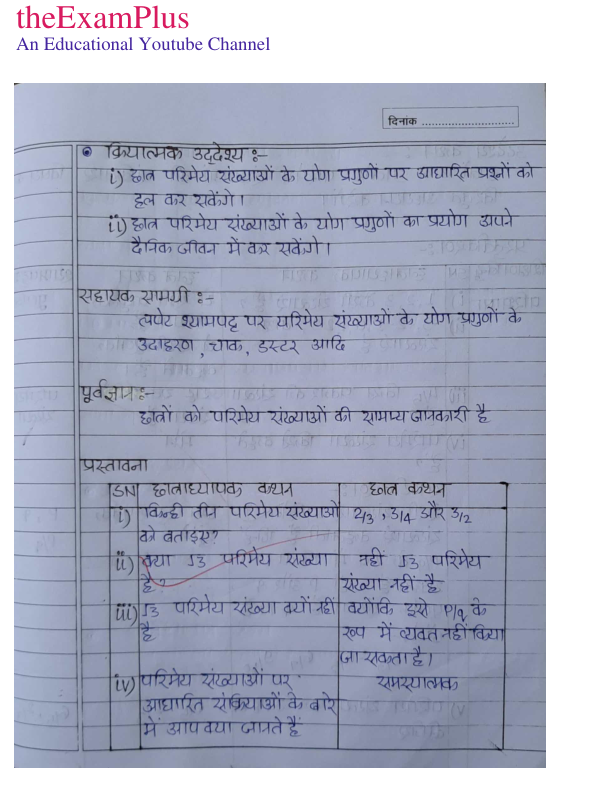 theExamPlus
An Educational Youtube Channel
दिनांक ............................
क्रियात्मक उद्देश्य :-
i) छात्र परिमेय संख्याओं के योग प्रगुणों पर आधारित प्रश्नों को
हल कर सकेंगे।
ii) छात्र परिमेय संख्याओं के योग प्रगुणों का प्रयोग अपने
दैनिक जीवन में कर सकेंगे।
सहायक सामग्री :-
लपेट श्यामपट्ट पर परिमेय संख्याओं के योग प्रगुणों के
उदाहरण, चाक, डस्टर आदि
पूर्वज्ञान:-
छात्रों को परिमेय संख्याओं की सामान्य जानकारी है
प्रस्तावना
SN छात्राध्यापक कथन छात्र कथन
i) किन्ही तीन परिमेय संख्याओं 2/3, 3/4 और 3/2
को बताइए?
ii) क्या √3 परिमेय संख्या नहीं √3 परिमेय
है? संख्या नहीं है
iii) √3 परिमेय संख्या क्यों नहीं क्योंकि इसे P/q के
है रूप में व्यक्त नहीं किया
जा सकता है।
iv) परिमेय संख्याओं पर समस्यात्मक
आधारित संक्रियाओं के बारे
में आप क्या जानते हैं